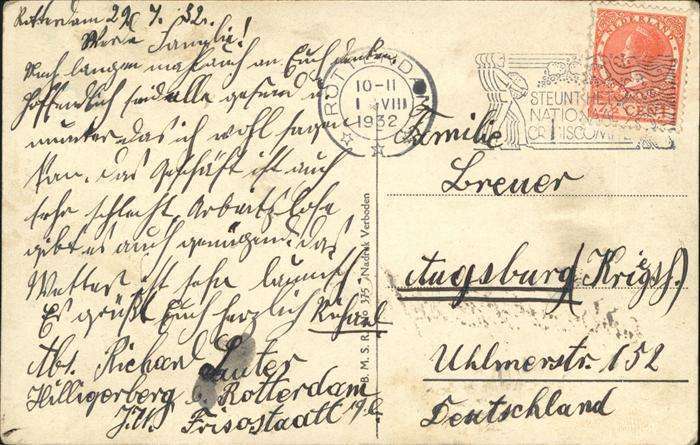 Rotterdam 29. 7. 32.
Werte Familie!
Nach langem mal auch an Euch denken
Hoffendlich seid alle gesund u.
munter das ich wohl sagen
kan. das Geschäft ist auch
sehr schlecht, Arbeitslose
gibt es auch genügen. das
Wetter ist sehr launisch
Es grüßt Euch herzlich Richard
Abs. Richard Sauter
Hilligerberg b. Rotterdam
Frisostaatt
B. M. S. R. No 375 Nadruk Verboden
ROTTERDAM
10-11
1 VIII
1932
STEUNT HET
NATIONAAL
CRISISCOMITÉ
NEDERLAND
Familie
Breuer
Augsburg (Krigsh.)
Uhlmerstr. 152
Deutschland